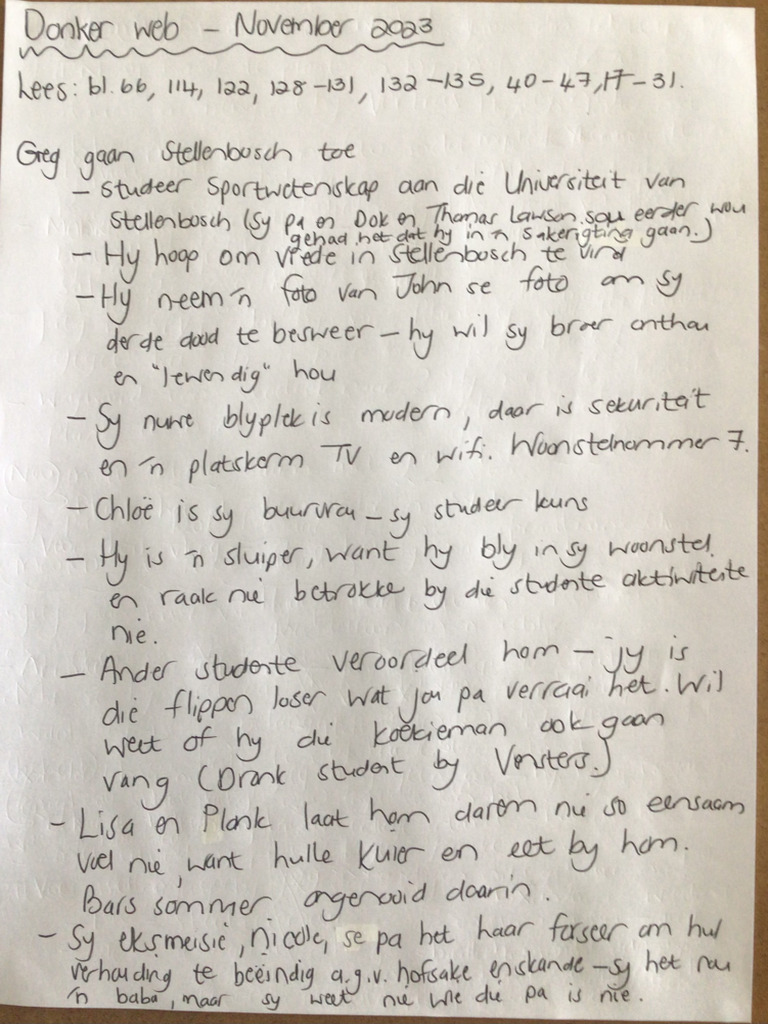 Donker web - November 2023
Lees: bl. 66, 114, 122, 128-131, 132-135, 40-47, 17-31.
Greg gaan Stellenbosch toe
- studeer Sportwetenskap aan die Universiteit van
Stellenbosch (sy pa en Dok en Thomas Lawson sou eerder wou
gehad het dat hy in 'n sakerigting gaan.)
- Hy hoop om vrede in Stellenbosch te vind
- Hy neem 'n foto van John se foto om sy
derde dood te besweer - hy wil sy broer onthou
en "lewendig" hou
- Sy nuwe blyplek is modern, daar is sekuriteit
en 'n platskerm TV en wifi. Woonstelnommer 7.
- Chloë is sy buurvrou - sy studeer kuns
- Hy is 'n sluiper, want hy bly in sy woonstel
en raak nie betrokke by die studente aktiwiteite
nie.
- Ander studente veroordeel hom - jy is
die flippen loser wat jou pa verraai het. Wil
weet of hy die koekieman ook gaan
vang (Dronk student by Vensters.)
- Lisa en Plank laat hom darem nie so eensaam
voel nie, want hulle kuier en eet by hom.
Bars sommer ongenooid daarin.
- Sy eksmeisie, Nicole, se pa het haar forseer om hul
verhouding te beëindig a.g.v. hofsake en skande - sy het nou
'n baba, maar sy weet nie wie die pa is nie.